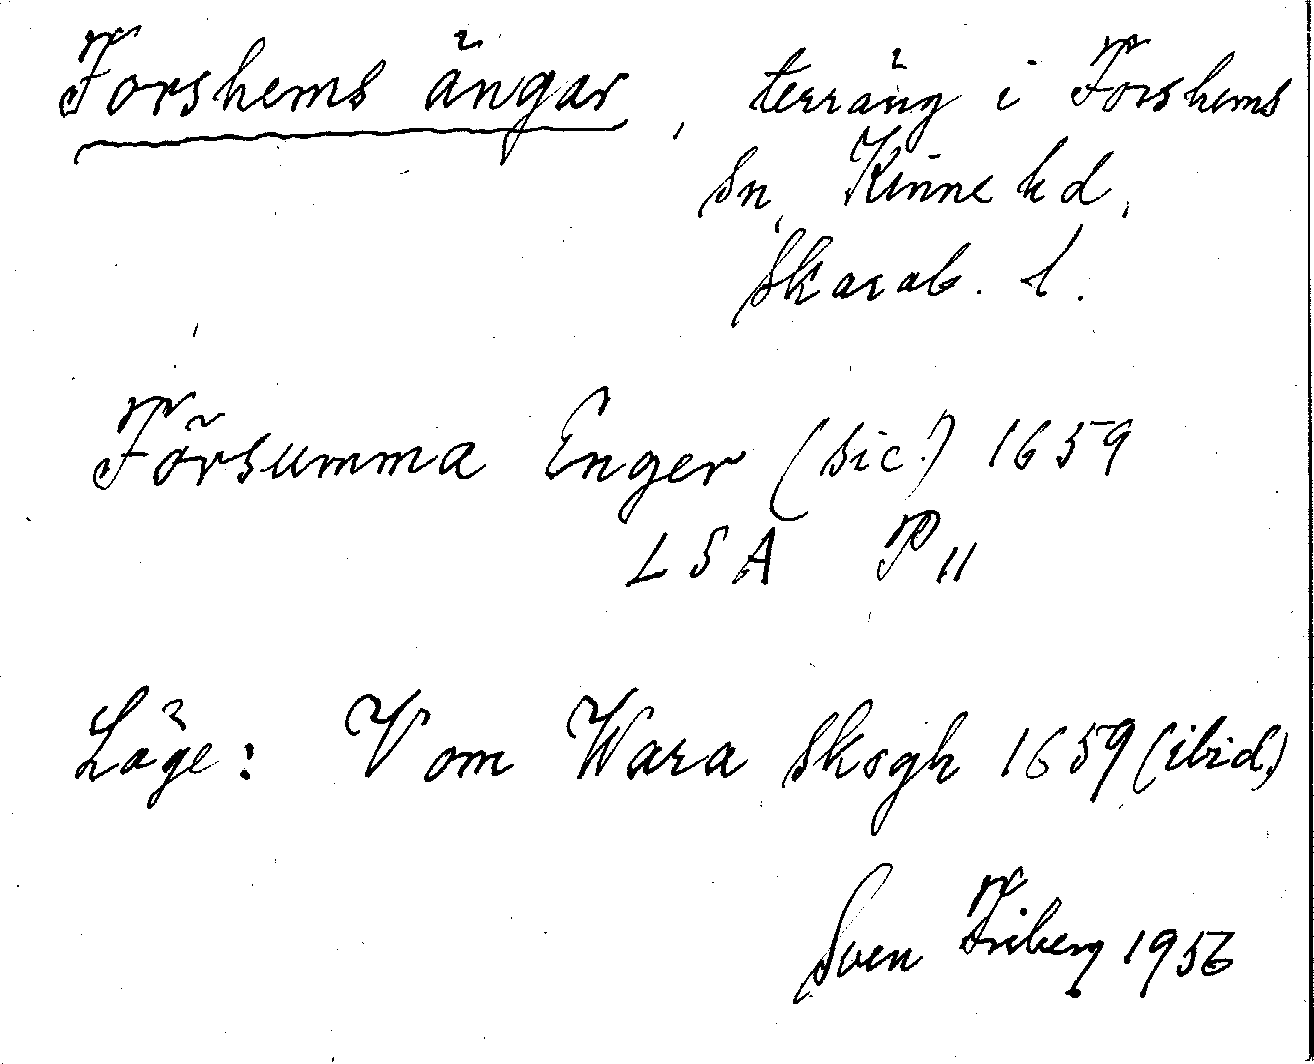 Forshems ängar, terräng i Forshems
sn, Kinne hd,
Skarab. l.
Försumma Enger (sic!) 1659
LSA P 11
Läge: V om Wara Skogh 1659 (ibid.)
Sven Friberg 1956